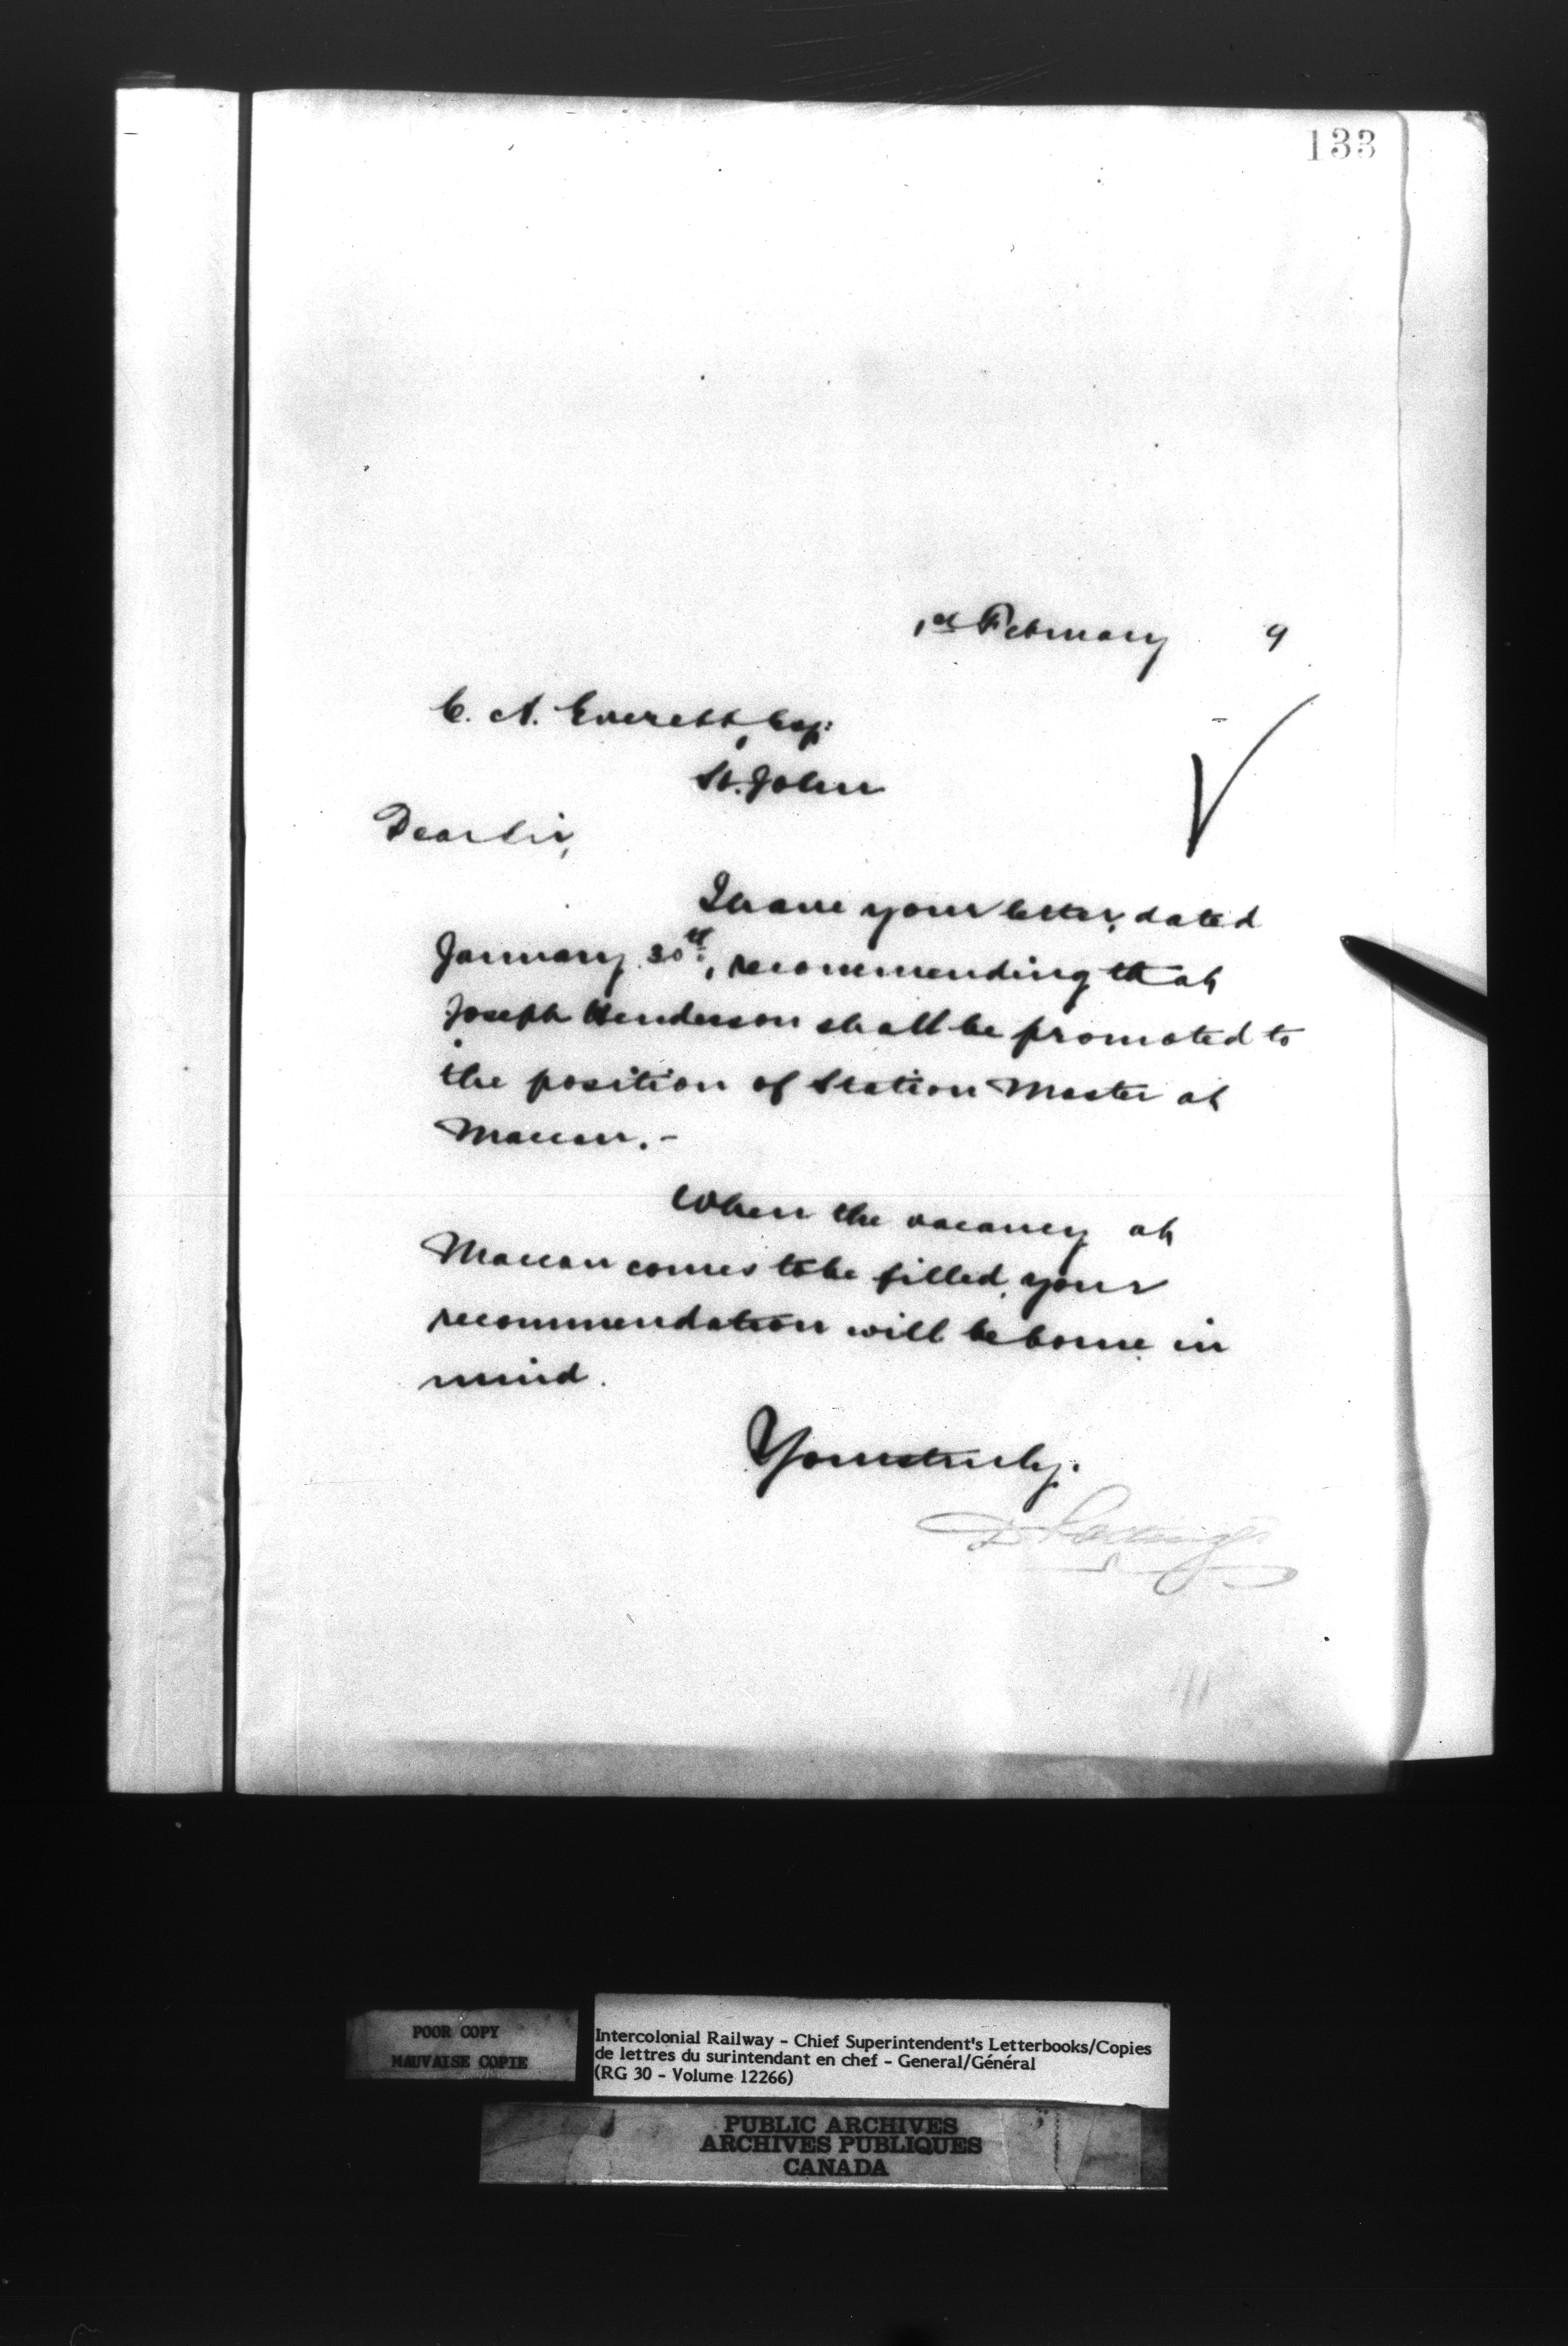 133
1st February 9
C. A. Everett, Esq:
St. John
Dear Sir,
I have your letter, dated
January 30th, recommending that
Joseph Henderson shall be promoted to
the position of Station Master at
Maccan. -
When the vacancy at
Maccan comes to be filled, your
recommendation will be borne in
mind.
Yours truly.
D Pottinger
POOR COPY
MAUVAISE COPIE
Intercolonial Railway - Chief Superintendent's Letterbooks/Copies
de lettres du surintendant en chef - General/Général
(RG 30 - Volume 12266)
PUBLIC ARCHIVES
ARCHIVES PUBLIQUES
CANADA